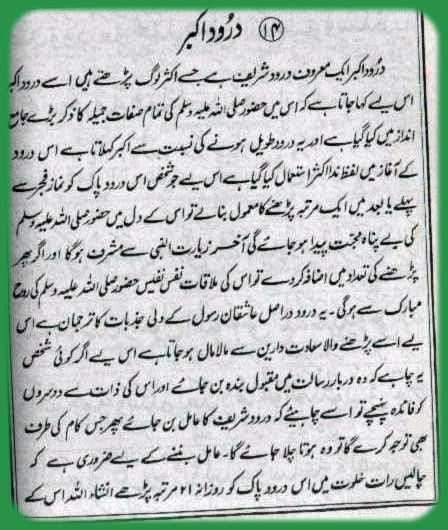 ۱۴ درُود اکبر
درُود اکبر ایک معروف درود شریف ہے جسے اکثر لوگ پڑھتے ہیں اسے درود اکبر
اس لیے کہا جاتا ہے کہ اس میں حضور صلی اللہ علیہ وسلم کی تمام صفات جمیلہ کا ذکر بڑے جامع
انداز میں کیا گیا ہے اور یہ درود طویل ہونے کی نسبت سے اکبر کہلاتا ہے اس درود
کے آغاز میں لفظ ندا اکثر استعمال کیا گیا ہے اس لیے جو شخص اس درود پاک کو نماز فجر سے
پہلے یا بعد میں ایک مرتبہ پڑھنے کا معمول بنا لے تو اس کے دل میں حضور صلی اللہ علیہ وسلم
کی بے پناہ محبت پیدا ہو جائے گی آخر زیارت النبی سے مشرف ہو گا اور اگر پھر
پڑھنے کی تعداد میں اضافہ کر دے تو اس کی ملاقات نفس نفیس حضور صلی اللہ علیہ وسلم کی روح
مبارک سے ہو گی ۔ یہ درود دراصل عاشقان رسول کے دلی جذبات کا ترجمان ہے اس
لیے اسے پڑھنے والا سعادت دارین سے مالا مال ہو جاتا ہے اس لیے اگر کوئی شخص
یہ چاہے کہ وہ دربار رسالت میں مقبول بندہ بن جائے اور اس کی ذات سے دوسروں
کو فائدہ پہنچے تو اسے چاہیئے کہ درود شریف کا عامل بن جائے پھر جس کام کی طرف
بھی توجہ کرے گا تو وہ ہوتا چلا جائے گا ۔ عامل بننے کے لیے ضروری ہے کہ
چالیس رات خلوت میں اس درود پاک کو روزانہ ۲۱ مرتبہ پڑھے انشاء اللہ اس کے